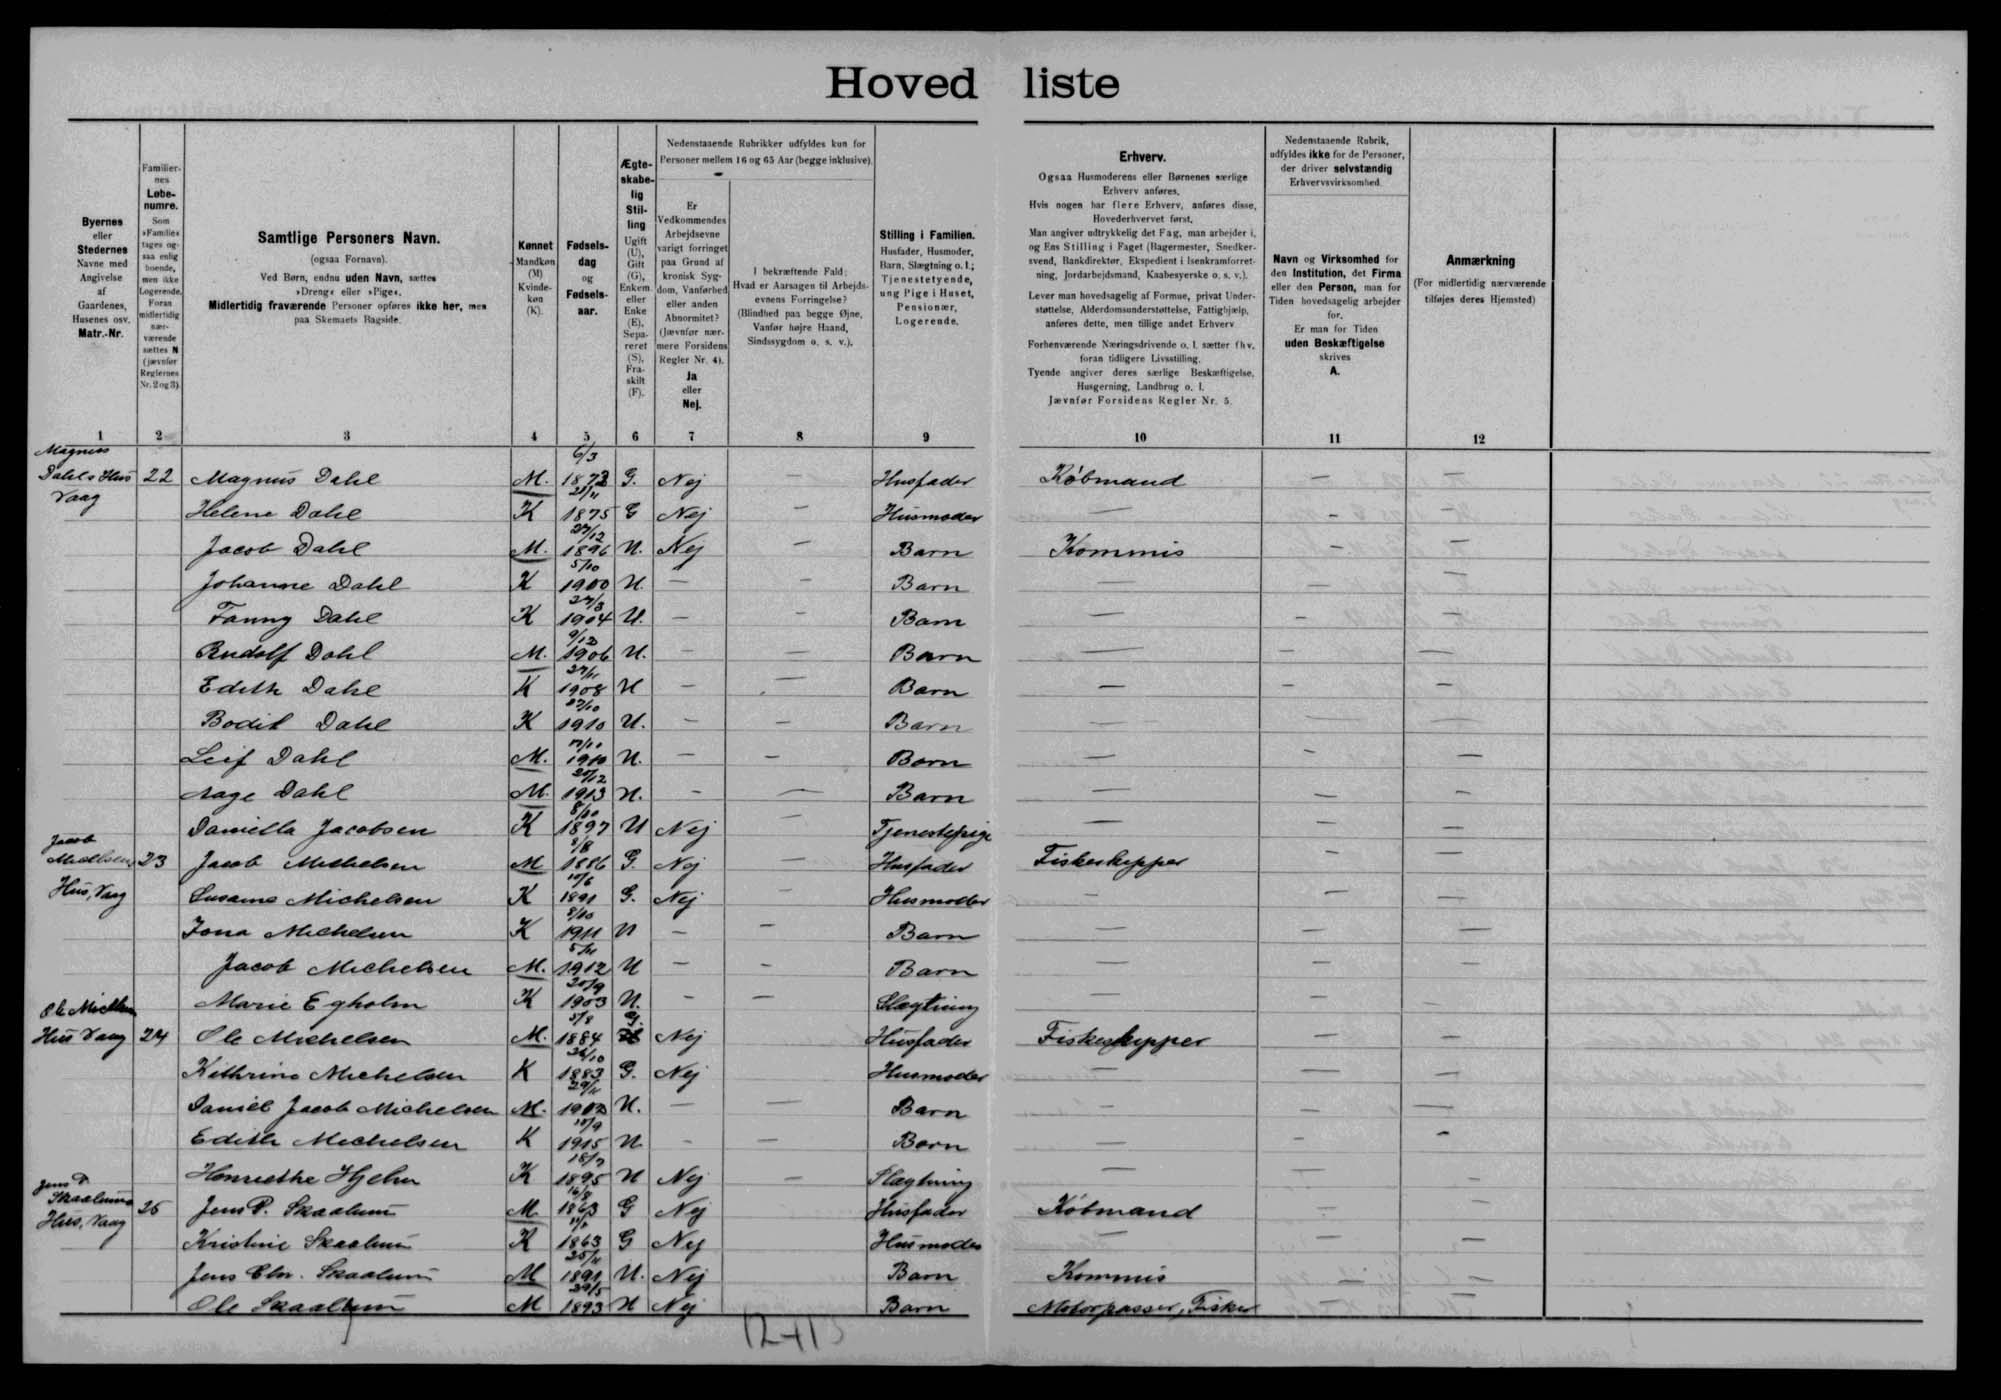 Hoved liste
Byernes
eller
Stedernes
Navne med
Angivelse
af
Gaardenes,
Husenes osv.
Matr.-Nr.
Familier-
nes
Løbe-
numre.
Som
»Familie«
tages og-
saa enlig
boende,
men ikke
Logerende.
Foran
midlertidig
nær-
værende
sættes N
(jævnfør
Reglernes
Nr. 2 og 3).
Samtlige Personers Navn.
(ogsaa Fornavn).
Ved Børn, endnu uden Navn, sættes
»Dreng« eller »Pige«.
Midlertidig fraværende Personer opføres ikke her, men
paa Skemaets Bagside.
Kønnet
Mandkøn
(M)
Kvinde-
køn
(K).
Fødsels-
dag
og
Fødsels-
aar.
Ægte-
skabe-
lig
Stil-
ling
Ugift
(U),
Gift
(G),
Enkem.
eller
Enke
(E),
Sepa-
reret
(S),
Fra-
skilt
(F).
Nedenstaaende Rubrikker udfyldes kun for
Personer mellem 16 og 65 Aar (begge inklusive).
Er
Vedkommendes
Arbejdsevne
varigt forringet
paa Grund af
kronisk Syg-
dom, Vanførhed
eller anden
Abnormitet?
(Jævnfør nær-
mere Forsidens
Regler Nr. 4).
Ja
eller
Nej.
I bekræftende Fald:
Hvad er Aarsagen til Arbejds-
evnens Forringelse?
(Blindhed paa begge Øjne,
Vanfør højre Haand,
Sindssygdom o. s. v.).
Stilling i Familien.
Husfader, Husmoder,
Barn, Slægtning o. l.;
Tjenestetyende,
ung Pige i Huset,
Pensionær,
Logerende.
Erhverv.
Ogsaa Husmoderens eller Børnenes særlige
Erhverv anføres.
Hvis nogen har flere Erhverv, anføres disse,
Hovederhvervet først.
Man angiver udtrykkelig det Fag, man arbejder i,
og Ens Stilling i Faget (Bagermester, Snedker-
svend, Bankdirektør, Ekspedient i Isenkramforret-
ning, Jordarbejdsmand, Kaabesyerske o. s. v.).
Lever man hovedsagelig af Formue, privat Under-
støttelse, Alderdomsunderstøttelse, Fattighjælp,
anføres dette, men tillige andet Erhverv
Forhenværende Næringsdrivende o. l. sætter fhv.
foran tidligere Livsstilling.
Tyende angiver deres særlige Beskæftigelse,
Husgerning, Landbrug o. l.
Jævnfør Forsidens Regler Nr. 5.
Nedenstaaende Rubrik,
udfyldes ikke for de Personer,
der driver selvstændig
Erhvervsvirksomhed.
Navn og Virksomhed for
den Institution, det Firma
eller den Person, man for
Tiden hovedsagelig arbejder
for.
Er man for Tiden
uden Beskæftigelse
skrives
A.
Anmærkning
(For midlertidig nærværende
tilføjes deres Hjemsted)
1 2 3 4 5 6 7 8 9 10 11 12
Magnus 6/3
Dahls Hus 22 Magnus Dahl M. 1873 G. Nej — Husfader Købmand — —
Vaag 21/11
Helene Dahl K 1875 G Nej — Husmoder — — —
27/12
Jacob Dahl M. 1896 U. Nej — Barn Kommis — —
5/10
Johanne Dahl K 1900 U. — — Barn — — —
27/3
Fanny Dahl K 1904 U. — — Barn — — —
9/12
Rudolf Dahl M. 1906 U. — — Barn — — —
27/11
Edith Dahl K 1908 U — — Barn — — —
27/10
Bodil Dahl K 1910 U. — — Barn — — —
Leif Dahl M. U. — — Barn — — —
20/12
Aage Dahl M. 1913 U. — — Barn — — —
8/10
Daniella Jacobsen K 1897 U Nej — Tjenestepige — — —
Jacob /8
Michelsens 23 Jacob Michelsen M 1886 G. Nej — Husfader Fiskeskipper — —
Hus, Vaag 10/6
Susanne Michelsen K 1891 G. Nej — Husmoder — — —
8/10
Jona Michelsen K 1911 U — — Barn — — —
5/11
Jacob Michelsen M. 1912 U — — Barn — — —
20/9
Marie Egholm K 1903 U. — — Slægtning — — —
Ole Michelsen 5/8 G.
Hus Vaag 24 Ole Michelsen M. 1884 Nej Husfader Fiskeskipper — —
26/10
Kathrine Michelsen K 1883 G. Nej Husmoder — — —
29/11
Daniel Jacob Michelsen M. U. — — Barn — — —
10/9
Edith Michelsen K 1915 U — — Barn — — —
18/7
Henriethe Hjelm K 1895 U Nej Slægtning — — —
Jens P. 16/8
Skaalums 25 Jens P. Skaalum M 1863 G Nej Husfader Købmand — —
Hus, Vaag
Kristine Skaalum K 1863 G Nej Husmoder — — —
25/11
Jens Chr. Skaalum M 1891 U. Nej Barn Kommis — —
29/5
Ole Skaalum M 1893 U Nej Barn Motorpasser, Fisker — —